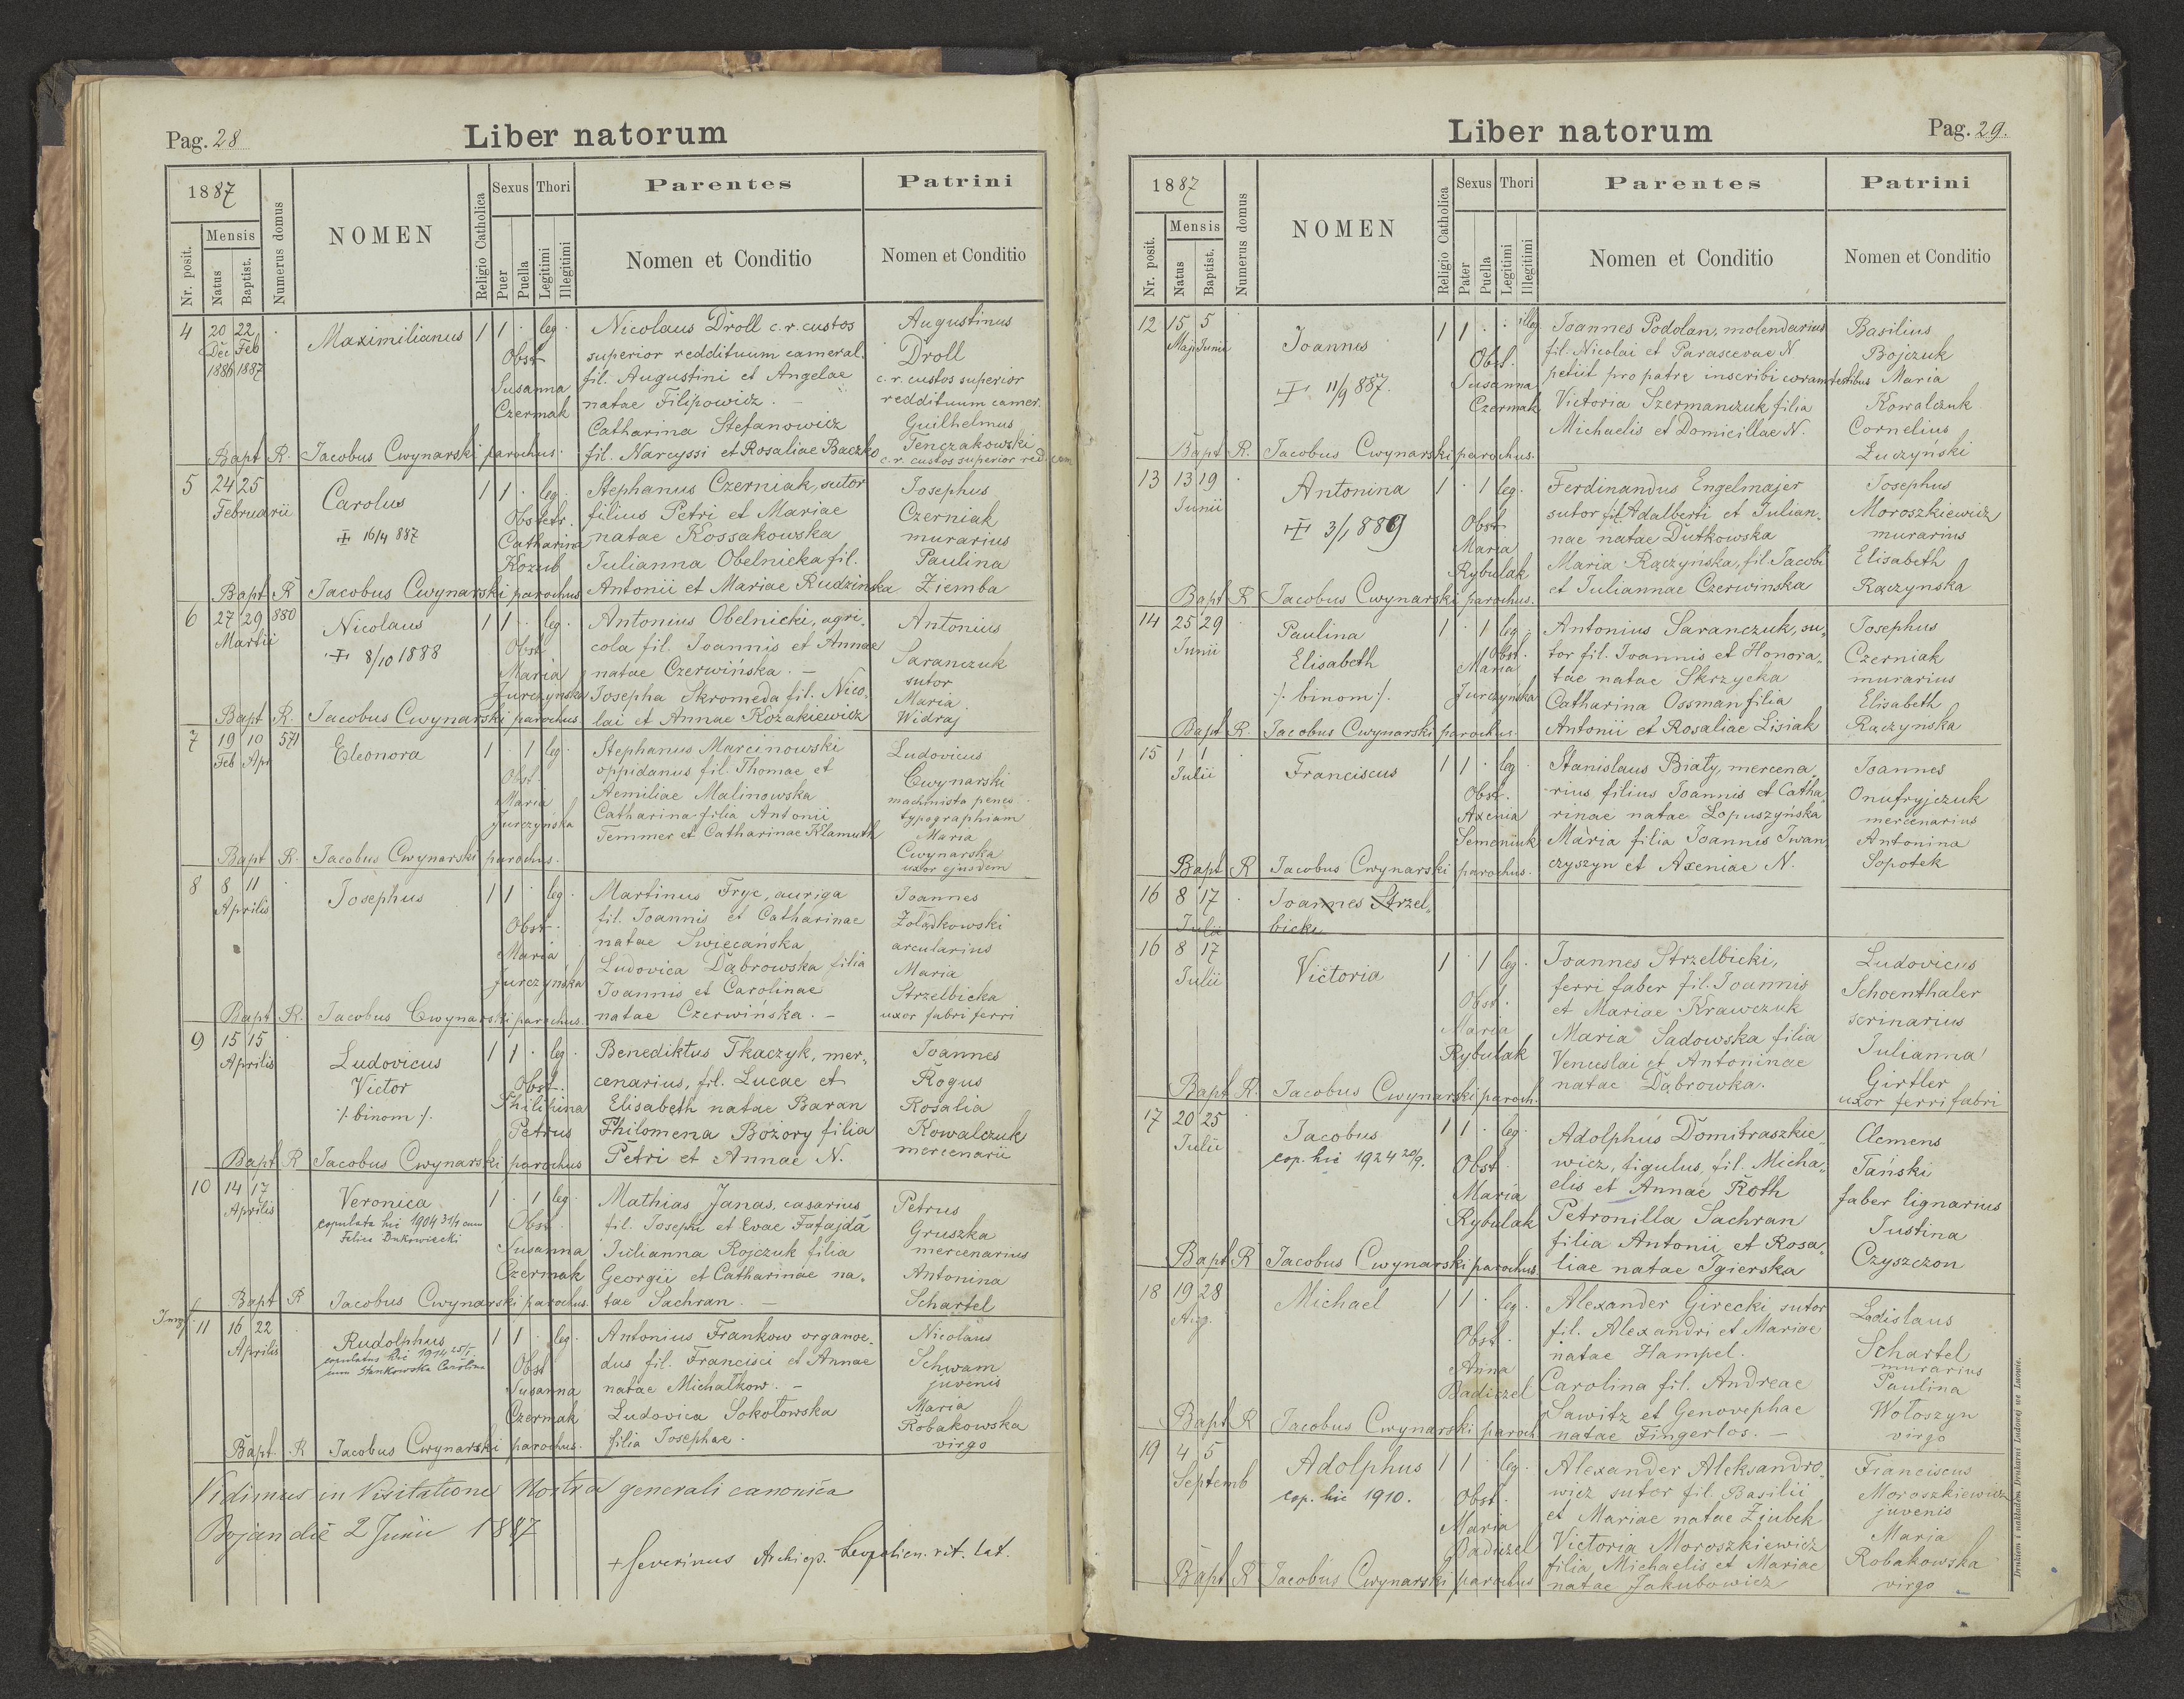 Pag. 28
Liber natorum
1887
Nr. posit.
Mensis
Natus
Baptist.
Numerus domus
NOMEN
Religio Catholica
Sexus
Puer
Puella
Thori
Legitimi
Illegitimi
Parentes
Nomen et Conditio
Patrini
Nomen et Conditio
4 20 22 Maximilianus 1 1 leg. Nicolaus Droll c.r. custos Augustinus
Dec Feb Obst superior reddituum cameral. Droll
1886 1887 Susanna fil. Augustini et Angelae c.r. custos superior
Czermak natae Filipowicz. reddituum camer.
Catharina Stefanowicz Guilhelmus
Bapt R. Jacobus Cwynarski parochus. fil. Narcyssi et Rosaliae Baczko Tenczakowski
c.r. custos superior red. cam
5 24 25 Carolus 1 1 leg. Stephanus Czerniak, sutor Josephus
Februarii Obstetr. filius Petri et Mariae Czerniak
16/4 887 Catharina natae Kossakowska murarius
Kozub Julianna Obelnicka fil. Paulina
Bapt R Jacobus Cwynarski parochus Antonii et Mariae Rudzinska Ziemba
6 27 29 880 Nicolaus 1 1 leg. Antonius Obelnicki, agri- Antonius
Martii 8/10 1888 Obst cola fil. Joannis et Annae Saranczuk
Maria natae Czerwińska. sutor
Jurczynska Josepha Skromeda fil. Nico- Maria
Bapt R. Jacobus Cwynarski parochus. lai et Annae Kozakiewicz Widraj
7 19 10 571 Eleonora 1 1 leg. Stephanus Marcinowski Ludovicus
Feb Apr oppidanus fil. Thomae et Cwynarski
Obst. Aemiliae Malinowska machinista penes
Maria Catharina filia Antonii typographiam
Jurczynska Temmer et Catharinae Klamuth Maria
Bapt R. Jacobus Cwynarski parochus. Cwynarska
uxor ejusdem
8 8 11 Josephus 1 1 leg. Martinus Fryc, auriga Joannes
Aprilis Obst. fil. Joannis et Catharinae Żolądkowski
Maria natae Swiecańska arcularius
Jurczyńska Ludovica Dąbrowska filia Maria
Joannis et Carolinae Strzelbicka
Bapt R. Jacobus Cwynarski parochus. natae Czerwińska. uxor fabri ferri
9 15 15 Ludovicus 1 1 leg. Benediktus Tkaczyk, mer- Joannes
Aprilis Victor Obst. cenarius, fil. Lucae et Rogus
/. binom /. Philipina Elisabeth natae Baran Rosalia
Petrus Philomena Bożory filia Kowalczuk
Bapt R Jacobus Cwynarski parochus Petri et Annae N. mercenarii
10 14 17 Veronica 1 1 leg. Mathias Janas, casarius Petrus
Aprilis copulata hic 1904 31/1 cum Obst. fil. Josephi et Evae Fafajda Gruszka
Felice Bukowiecki Susanna Julianna Rojczuk filia mercenarius
Czermak Georgii et Catharinae na- Antonina
Bapt R Jacobus Cwynarski parochus. tae Sachran. Schartel
11 16 22 Rudolphus 1 1 leg. Antonius Frankow organoe- Nicolaus
Aprilis copulatus hic 1914 25/1 Obst dus fil. Francisci et Annae Schwam
cum Stankowska Carolina Susanna natae Michalkow. juvenis
Czermak Ludovica Sokołowska Maria
Bapt. R Jacobus Cwynarski parochus. filia Josephae. Robakowska
virgo
Vidimus in Visitatione Nostra generali canonica
Bojan die 2 Junii 1887
+ Severinus Archiep. Leopolien. rit. lat.
Pag. 29.
Liber natorum
1887
Nr. posit.
Mensis
Natus
Baptist.
Numerus domus
NOMEN
Religio Catholica
Sexus
Pater
Puella
Thori
Legitimi
Illegitimi
Parentes
Nomen et Conditio
Patrini
Nomen et Conditio
12 15 5 Joannes 1 1 illeg. Joannes Podolan, molendarius Basilius
Maji Junii Obst. fil. Nicolai et Parascevae N. Bojczuk
11/9 887. Susanna petiit pro patre inscribi coram testibus Maria
Czermak Victoria Szermanczuk filia Kowalczuk
Michaelis et Domicillae N. Cornelius
Bapt R. Jacobus Cwynarski parochus. Łuczyński
13 13 19 Antonina 1 1 leg. Ferdinandus Engelmajer Josephus
Junii Obst sutor fil. Adalberti et Julian- Moroszkiewicz
3/1 889 Maria nae natae Dutkowska murarius
Rybulak Maria Rączyńska, fil. Jacobi Elisabeth
Bapt R Jacobus Cwynarski parochus. et Juliannae Czerwinska Rączynska
14 25 29 Paulina 1 1 leg. Antonius Saranczuk, su- Josephus
Junii Elisabeth Obst. tor fil. Joannis et Honora- Czerniak
/. binom /. Maria tae natae Skrzycka murarius
Jurczyńska Catharina Ossman filia Elisabeth
Bapt R. Jacobus Cwynarski parochus. Antonii et Rosaliae Lisiak Rączynska
15 1 1 Franciscus 1 1 leg. Stanislaus Biały, mercena- Joannes
Julii Obst. rius filius Joannis et Catha- Onufryjczuk
Axenia rinae natae Lopuszyńska mercenarius
Semeniuk Maria filia Joannis Iwan- Antonina
Bapt R Jacobus Cwynarski parochus. czyszyn et Axeniae N. Sopotek
16 8 17 Joannes Strzel-
Julii bicki
16 8 17 Victoria 1 1 leg. Joannes Strzelbicki, Ludovicus
Julii Obst. ferri faber fil. Joannis Schoenthaler
Maria et Mariae Krawczuk scrinarius
Rybulak Maria Sadowska filia Julianna
Venceslai et Antoninae Girtler
Bapt R. Jacobus Cwynarski paroch. natae Dąbrowka. uxor ferri fabri
17 20 25 Jacobus 1 1 leg. Adolphus Domitraszkie- Clemens
Julii cop. hic 1924 20/9. Obst. wicz, figulus, fil. Micha- Tański
Maria elis et Annae Roth faber lignarius
Rybulak Petronilla Sachran Justina
filia Antonii et Rosa- Czyszczon
Bapt R Jacobus Cwynarski parochus liae natae Igierska
18 19 28 Michael 1 1 leg. Alexander Girecki, sutor Ladislaus
Aug. Obst. fil. Alexandri et Mariae Schartel
Anna natae Hampel. murarius
Badiczel Carolina fil. Andreae Paulina
Sawitz et Genovephae Wołoszyn
Bapt R Jacobus Cwynarski paroch natae Fingerlos. virgo
19 4 5 Adolphus 1 1 leg. Alexander Aleksandro- Franciscus
Septemb cop. hic 1910. Obst. wicz sutor fil. Basilii Moroszkiewicz
Maria et Mariae natae Ziubek juvenis
Badiczel Victoria Moroszkiewicz Maria
Bapt R Jacobus Cwynarski parochus filia Michaelis et Mariae Robakowska
natae Jakubowicz virgo
Drukiem i nakładem Drukarni Ludowej we Lwowie.